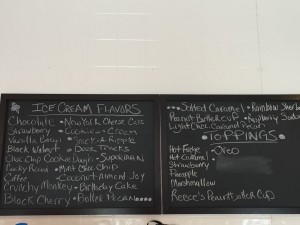 ICE CREAM FLAVORS
Chocolate • New York Cheese Cake
Strawberry • Cookies & Cream
Vanilla Bean •
Black Walnut • Deer Tracks
Choc Chip Cookie Dough • Superman
Rocky Road • Mint Choc Chip
Coffee • Coconut Almond Joy
Crunchy Monkey • Birthday Cake
Black Cherry • Butter Pecan
Salted Caramel • Rainbow Sherbet
Peanut Butter Cup • Raspberry Sorbet
Light Choc Caramel Pecan
• TOPPINGS •
Hot Fudge • Oreo
Hot Caramel
Strawberry
Pineapple
Marshmallow
Reece's Peanut Butter Cup